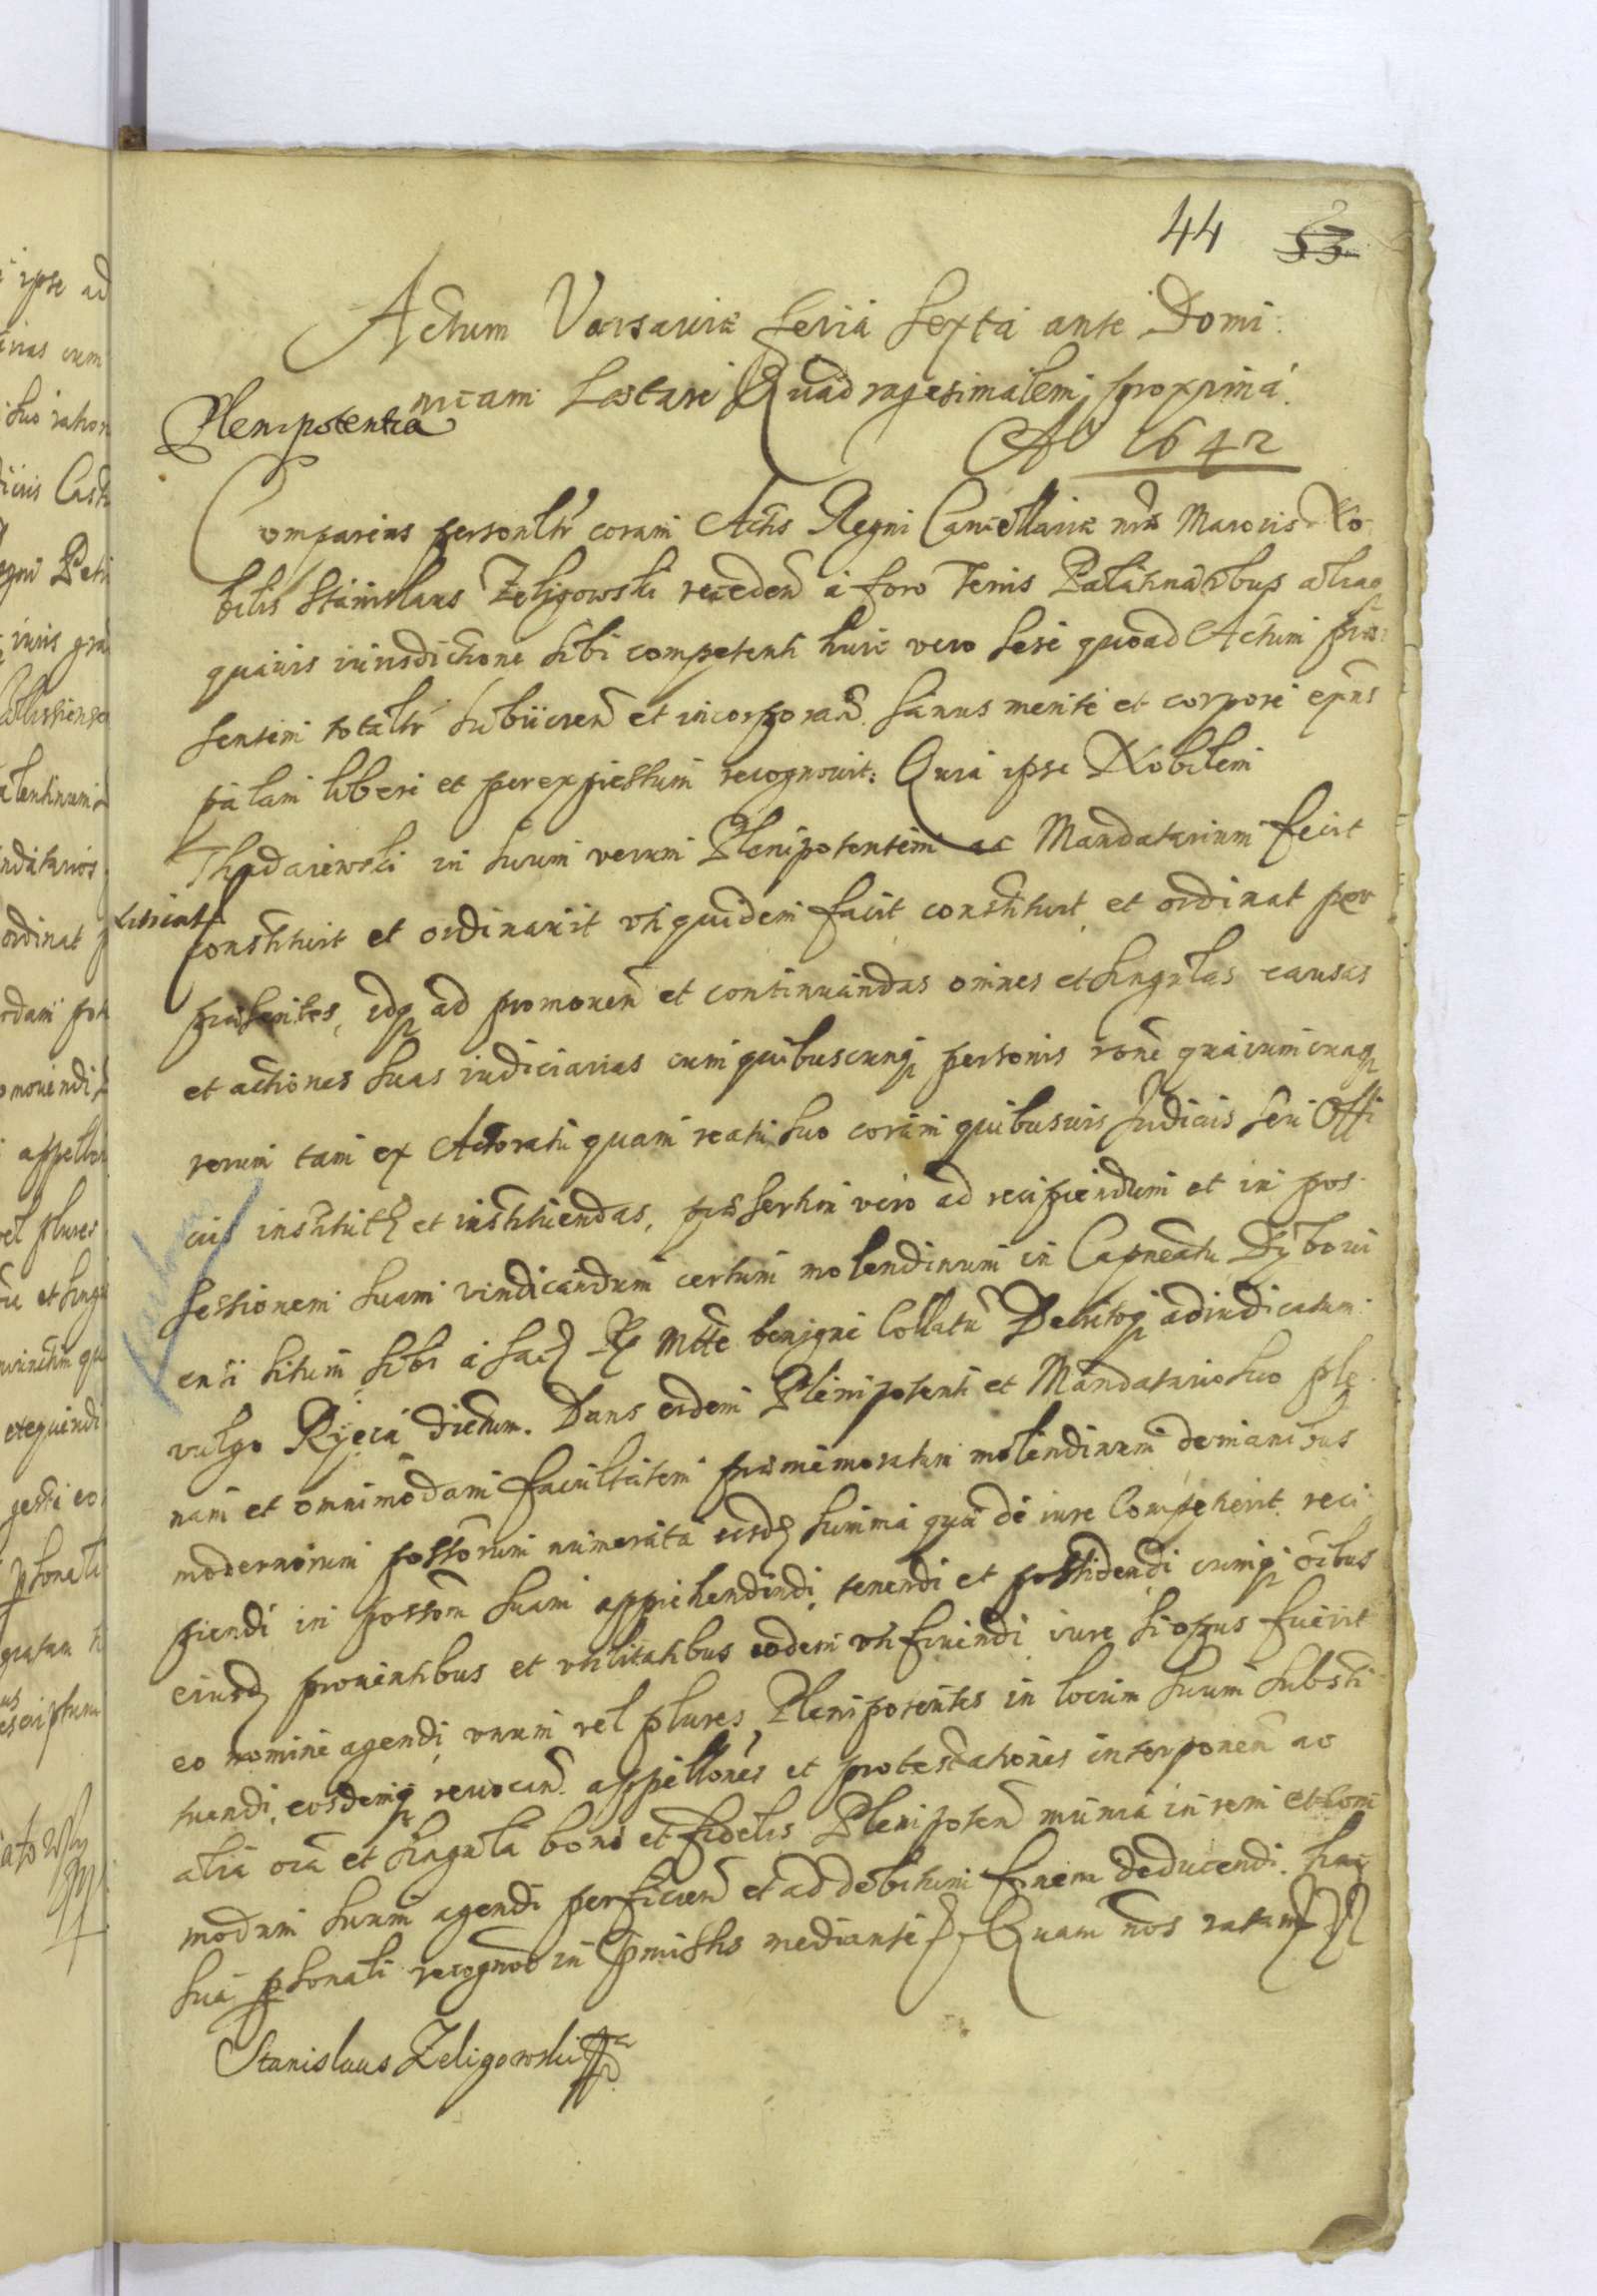 44 53
Actum Varsaviæ feria sexta ante Domi
nicam Laetare Quadragesimalem proxima
Plenipotentia
Aº 1642
Comparens personltr coram Actis Regni Cancellariæ nræ Maioris No
bilis Stanislaus Zeligowski receden a foro Terris Palatinatibus aliaq
quavis iurisdictione sibi competenti huic vero sese quoad Actum præ
sentem totaltr subiicien et incorporan sanus mente et corpore expns
palam libere et per expressum recognovit: Quia ipse Nobilem
Thadaiewski in suum verum Plenipotentem ac Mandatarium fecit
constituit et ordinavit uti quidem facit constituit et ordinat per
præsentes, idq ad promouen et continuandas omnes et singulas causas
et actiones suas iudiciarias cum quibuscunq personis rone quarumcunq
rerum tam ex Actoratu quam reatu suo coram quibusvis Judiciis seu Offi
ciis institut et instituendas, præsertim vero ad recipiendum et in pos
sessionem suam vindicandum certum molendinum in Capneatu Dybovi
ensi situm sibi a Sac R Mtte benigne Collatu Decretoq adiudicatum
vulgo Ryeca dictum. Dans eidem Plenipotenti et Mandatario suo ple
nam et omnimodam facultatem præmemoratum molendinum de manibus
modernorum possorum numerata eisd summa quæ de iure Competierit reci
piendi in possom suam apprehendendi, tenendi et possidendi cumq oibus
eiusd proventibus et utilitatibus eodem uti fruendi iure si opus fuerit
eo nomine agendi, unum vel plures Plenipotentes in locum suum substi
tuendi, eosdemq revocan appellones et protestationes interponen ac
alia oia et singula boni et fidelis Plenipoten munia in rem et com
modum suum agendi perficien et ad debitum finem deducendi. hac
sua psonali recogno in pmissis mediante Quam nos ratam
Stanislaus Zeligowski